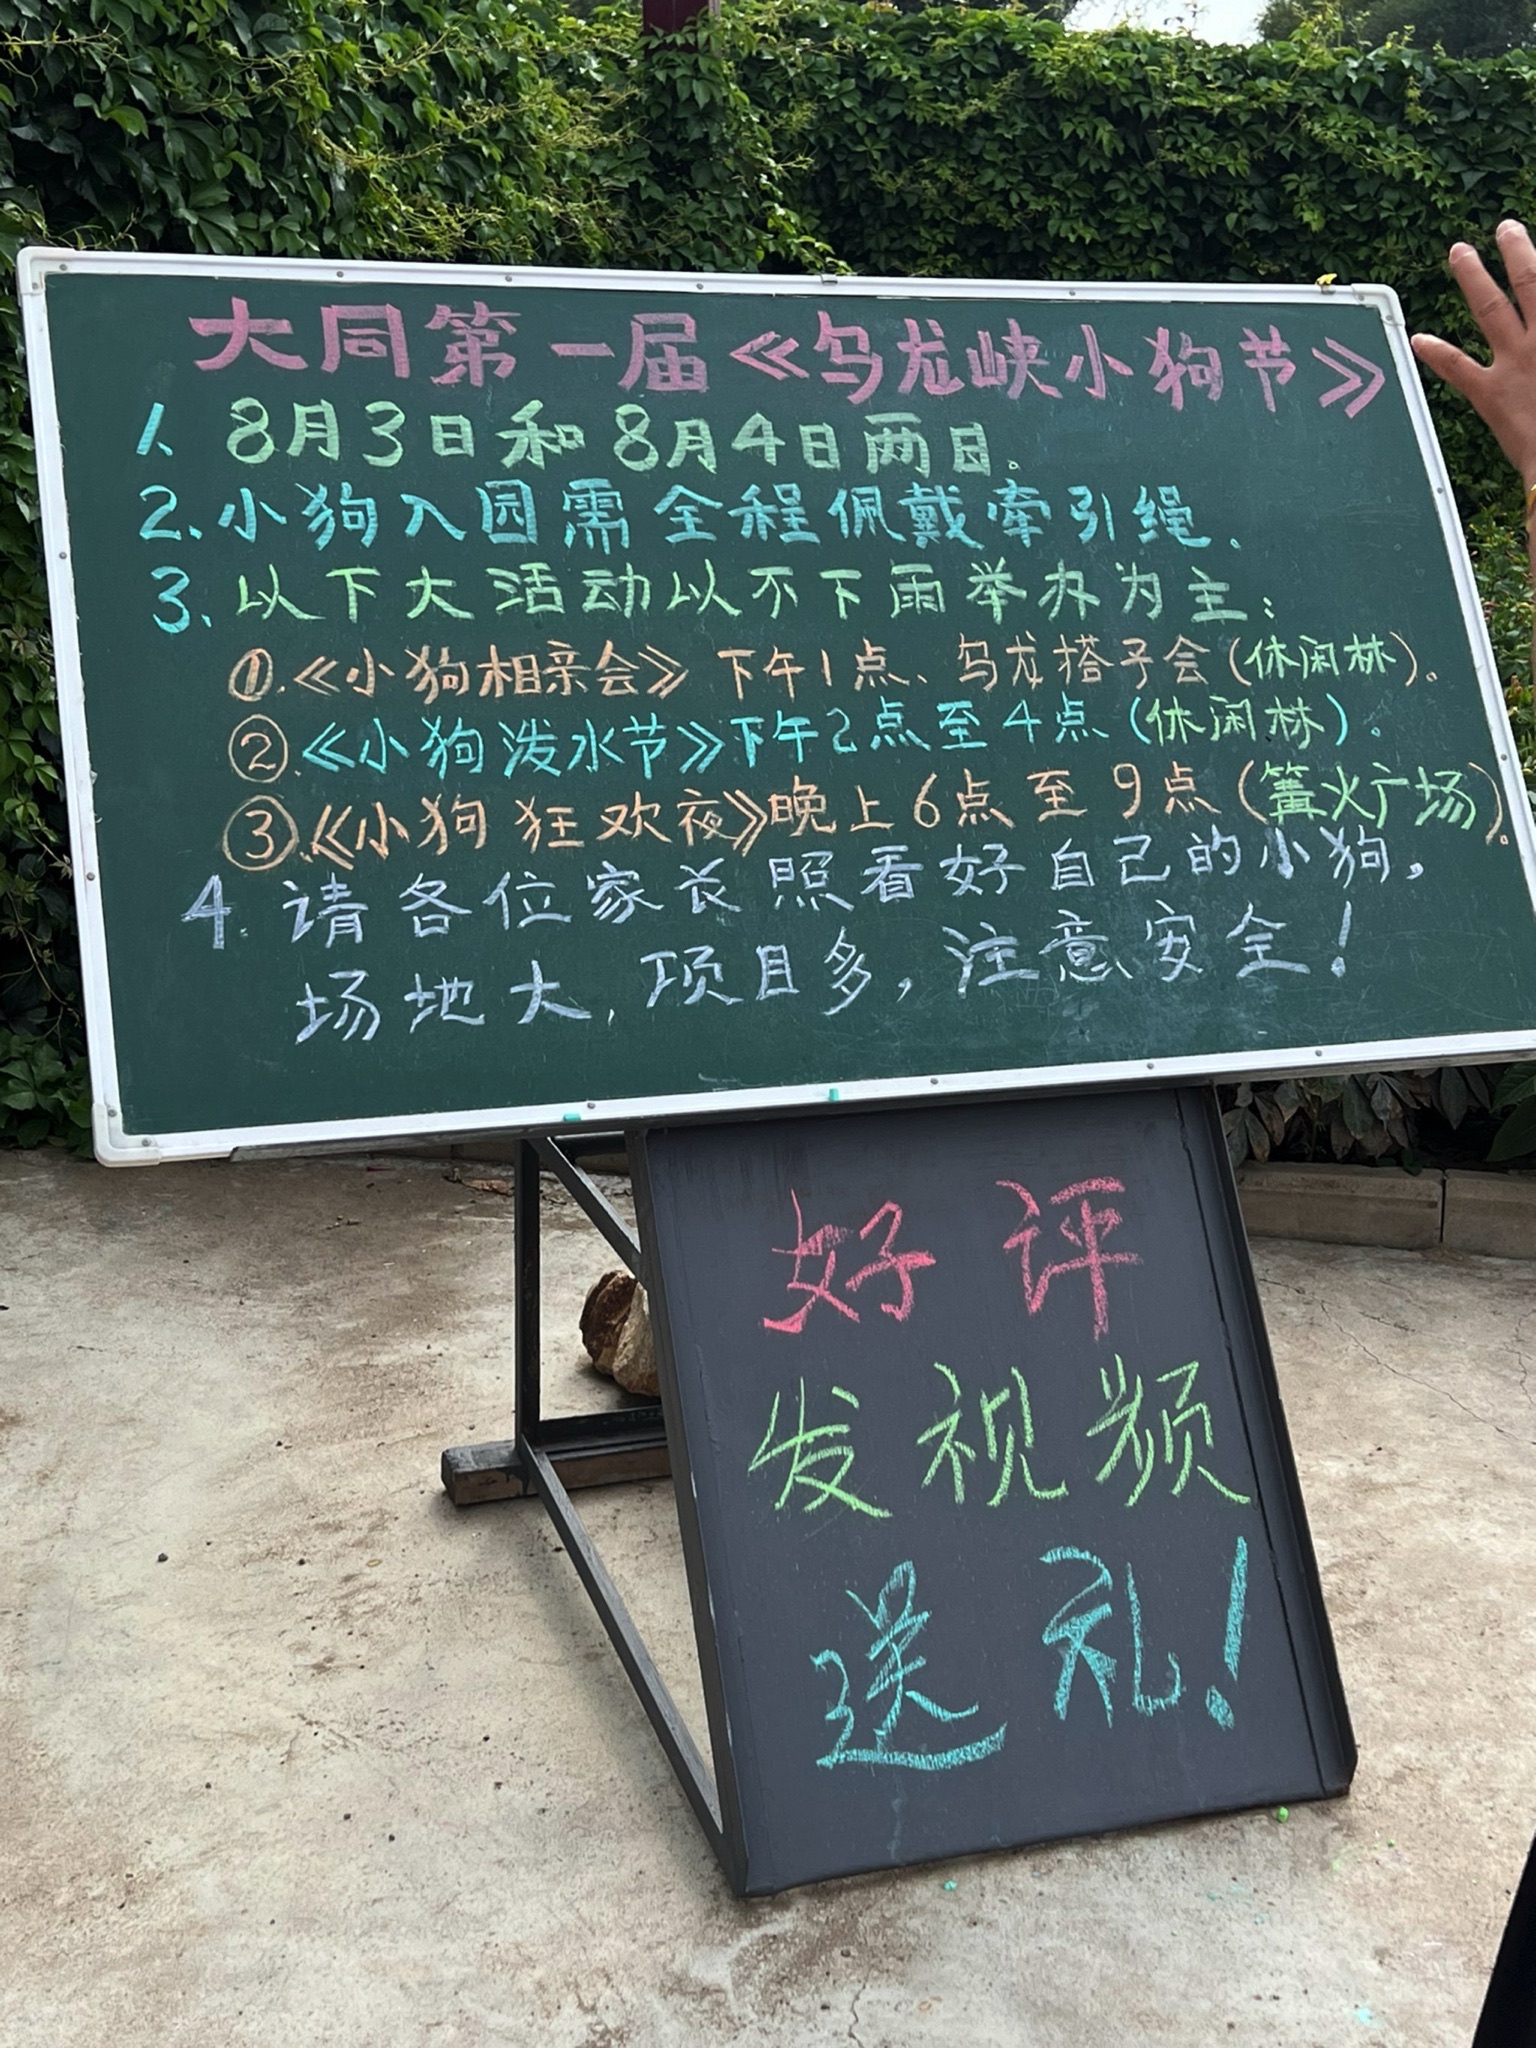 大同第一届《乌龙峡小狗节》
1. 8月3日和8月4日两日。
2. 小狗入园需全程佩戴牵引绳。
3. 以下大活动以不下雨举办为主：
①.《小狗相亲会》下午1点、乌龙搭子会(休闲林)。
②.《小狗泼水节》下午2点至4点(休闲林)。
③.《小狗狂欢夜》晚上6点至9点(篝火广场)。
4. 请各位家长照看好自己的小狗，
场地大，项目多，注意安全！
好评
发视频
送礼！